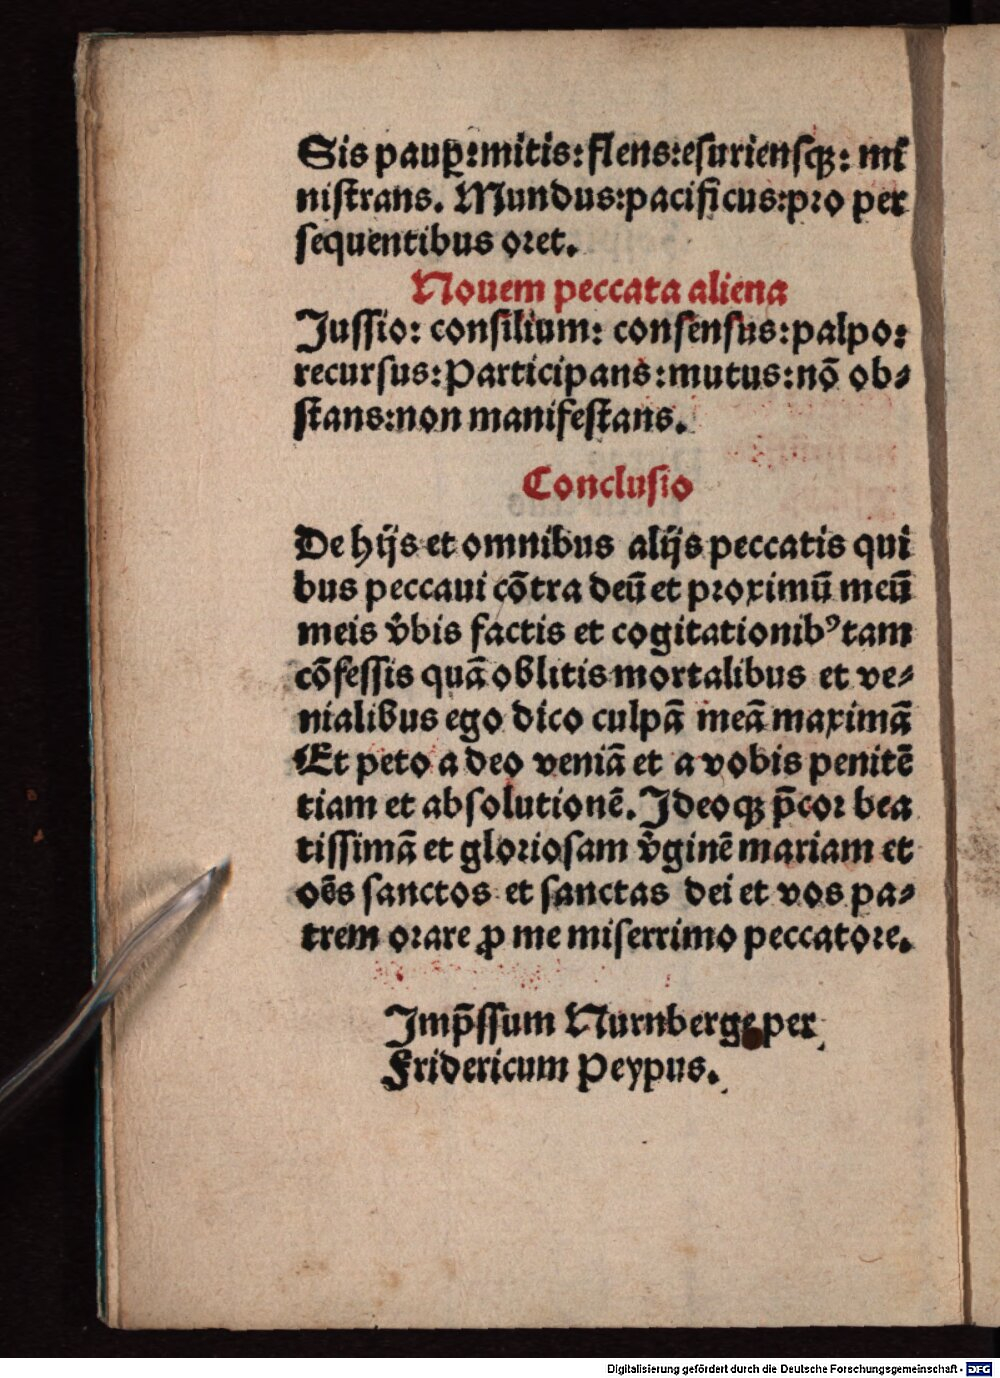 Sis paup̲: mitis: flens: esuriensqꝫ: mi
nistrans. Mundus: pacificus: pro per
sequentibus oret.
Nouem peccata aliena
Jussio: consilium: consensus: palpo:
recursus: Participans: mutus: nō ob⸗
stans: non manifestans.
Conclusio
De hijs et omnibus alijs peccatis qui
bus peccaui cōtra deū et proximū meū
meis v̄bis factis et cogitationibꝰ tam
cōfessis quā oblitis mortalibus et ve⸗
nialibus ego dico culpā meā maximā
Et peto a deo veniā et a vobis penitē
tiam et absolutionē. Jdeoqꝫ p̄cor bea
tissimā et gloriosam v̄ginē mariam et
oēs sanctos et sanctas dei et vos pa⸗
trem orare ꝓ me miserrimo peccatore.
Jmp̄ssum Nurnberge per
Fridericum Peypus.
Digitalisierung gefördert durch die Deutsche Forschungsgemeinschaft - DFG